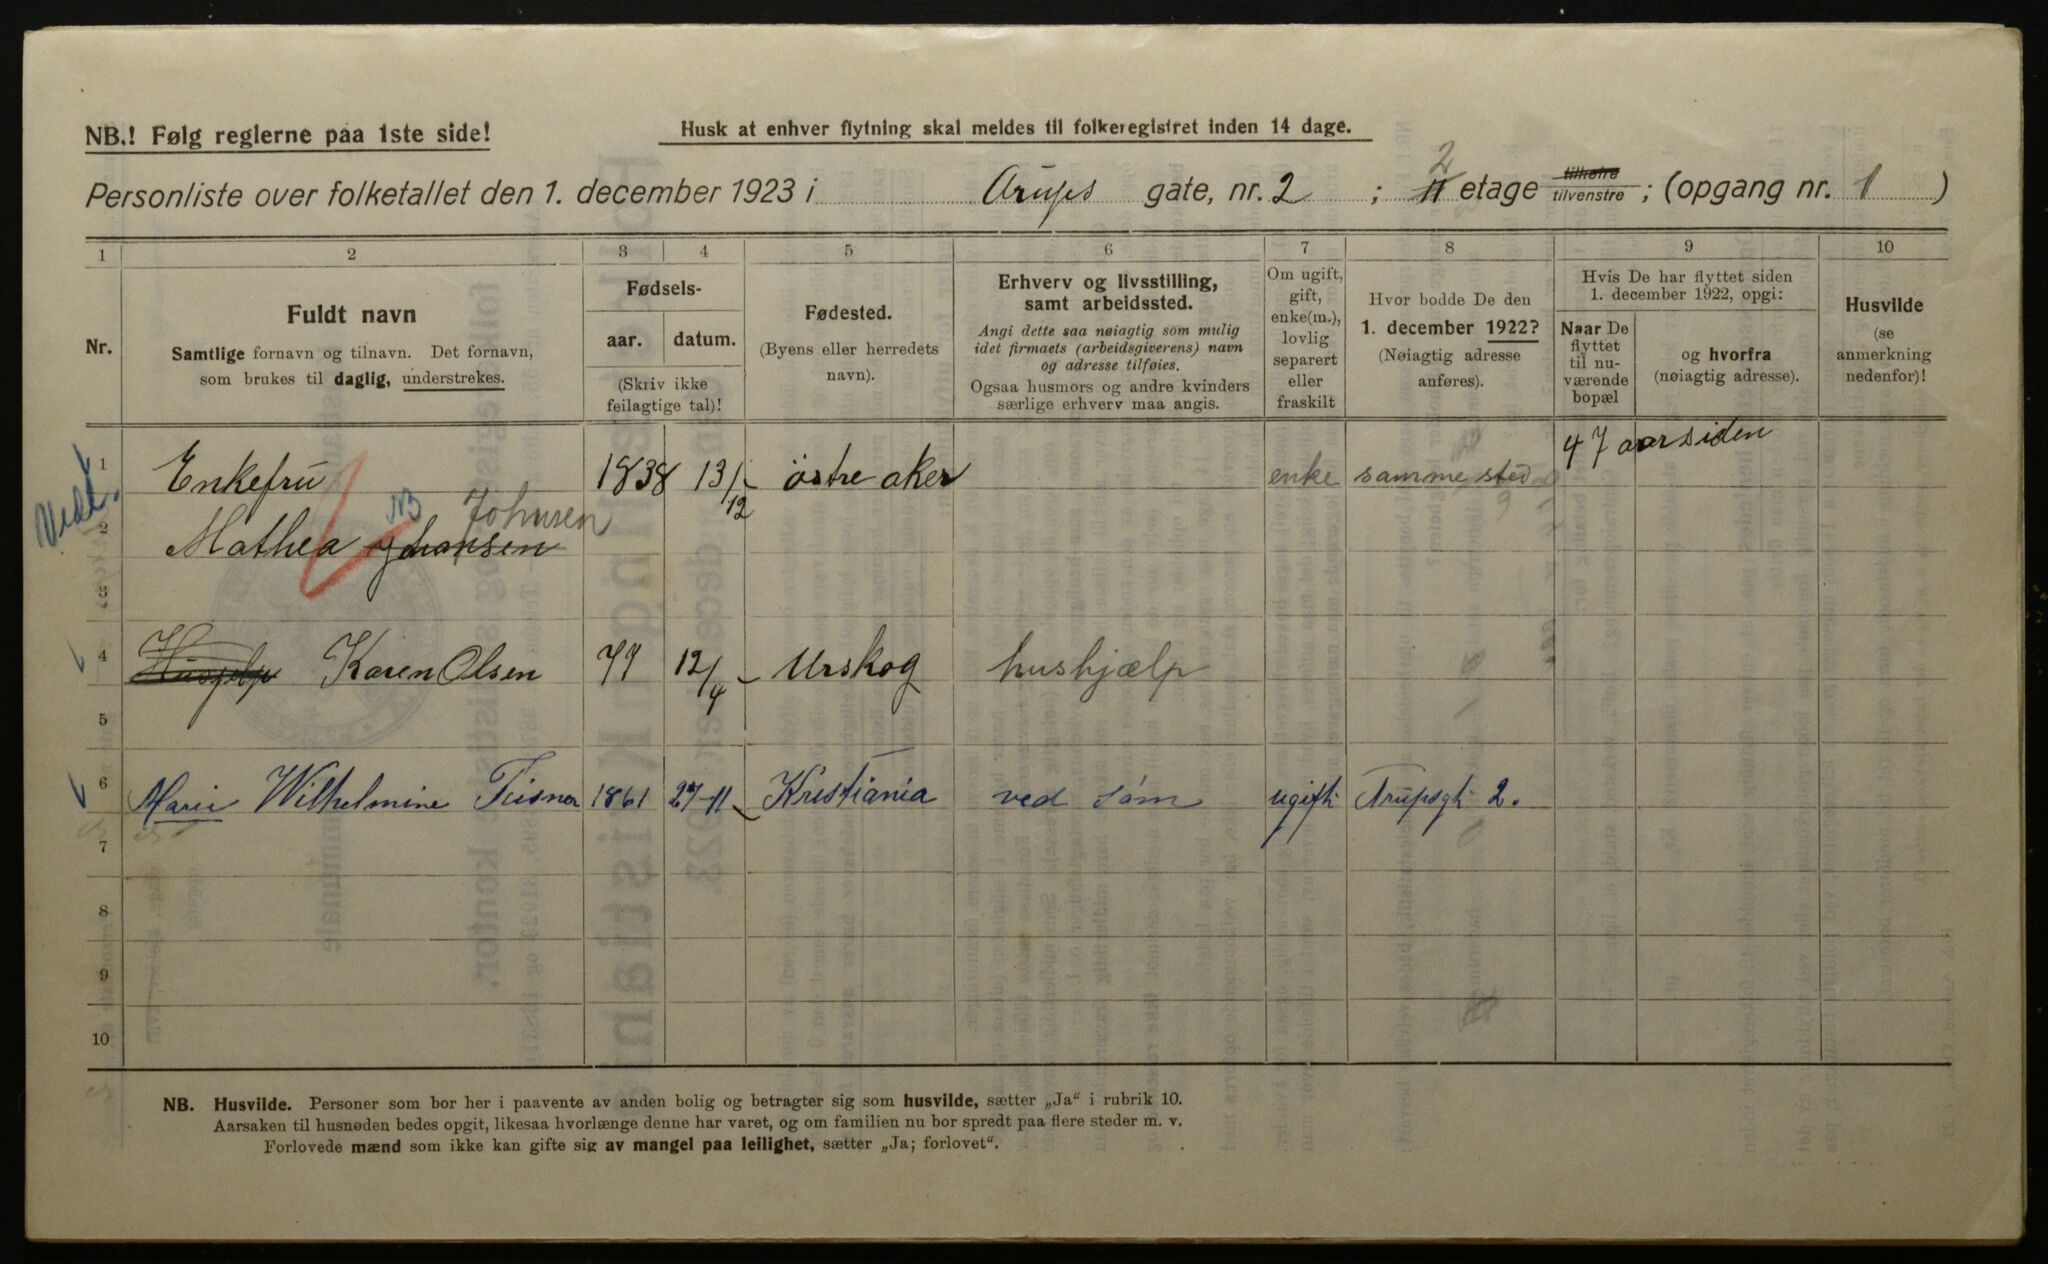 NB.! Følg reglerne paa 1ste side!
Husk at enhver flytning skal meldes til folkeregistret inden 14 dage.
Personliste over folketallet den 1. december 1923 i Arups gate, nr. 2 ; 2 etage tilhøire tilvenstre ; (opgang nr. 1 )
1 2 3 4 5 6 7 8 9 10
Nr.
Fuldt navn
Samtlige fornavn og tilnavn. Det fornavn,
som brukes til daglig, understrekes.
Fødsels-
aar. datum.
(Skriv ikke
feilagtige tal)!
Fødested.
(Byens eller herredets
navn).
Erhverv og livsstilling,
samt arbeidssted.
Angi dette saa nøiagtig som mulig
idet firmaets (arbeidsgiverens) navn
og adresse tilføies.
Ogsaa husmors og andre kvinders
særlige erhverv maa angis.
Om ugift,
gift,
enke(m.),
lovlig
separert
eller
fraskilt
Hvor bodde De den
1. december 1922?
(Nøiagtig adresse
anføres).
Hvis De har flyttet siden
1. december 1922, opgi:
Naar De
flyttet
til nu-
værende
bopæl
og hvorfra
(nøiagtig adresse).
Husvilde
(se
anmerkning
nedenfor)!
1 Enkefru 1838 13/12 østre aker enke samme sted 47 aar siden
NB Johnsen
2 Mathea Johansen
3
4 Karen Olsen 77 12/4 Urskog hushjælp
5
6 Marie Wilhelmine 1861 27-11 Kristiania ved søm ugift Arupsgt 2.
7
8
9
10
NB. Husvilde. Personer som bor her i paavente av anden bolig og betragter sig som husvilde, sætter „Ja“ i rubrik 10.
Aarsaken til husnøden bedes opgit, likesaa hvorlænge denne har varet, og om familien nu bor spredt paa flere steder m. v.
Forlovede mænd som ikke kan gifte sig av mangel paa leilighet, sætter „Ja; forlovet“.